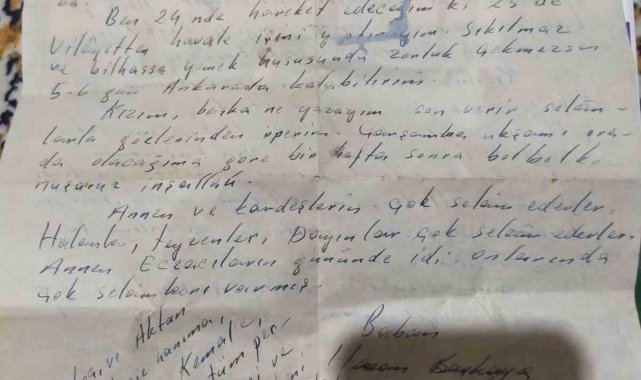 Ben 24, nde hareket edeceğim ki 25 de
Vilâyetten havale işini yatırayım. Sıkılmaz
ve bilhassa yemek hususunda zorluk çekmezsen
5-6 gün Ankarada kalabilirim.
Kızım, başka ne yazayım son verir selâm-
larla gözlerinden öperim. Çarşamba akşamı ora-
da olacağıma göre bir hafta sonra bol bol ko
nuşuruz inşallah.
Annen ve kardeşlerin çok selâm ederler.
Halanlar, teyzenler, Dayınlar çok selâm ederler.
Annen Eczacıların gününde idi. onlarında
çok selâmları varmış.
ve Aktan
hanıma,
Kemal
ve
Baban
Hasan